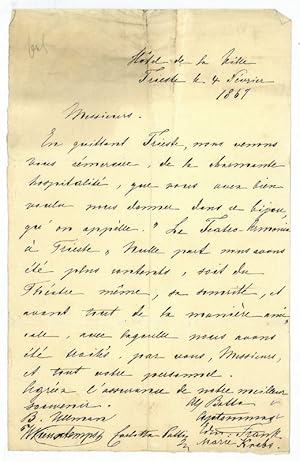 Hôtel de la Ville
Trieste le 4 Février
1867
Messieurs.
En quittant Trieste, nous venons
vous remercier, de la charmante
hospitalité, que vous avez bien
voulu nous donner dans ce bijou,
qu'on appelle "Le Teatro Armonia
à Trieste" Nulle part nous avons
été plus contents, soit du
Théâtre même, sa sonorité, et
avant tout de la manière ami-
cale, avec laquelle nous avons
été traités, par vous, Messieurs,
et tout votre personnel.
Agréez l'assurance de notre meilleur
souvenir.
B. Ullman
H Vieuxtemps Carlotta Patti
Alf
Frank
Marie Krebs